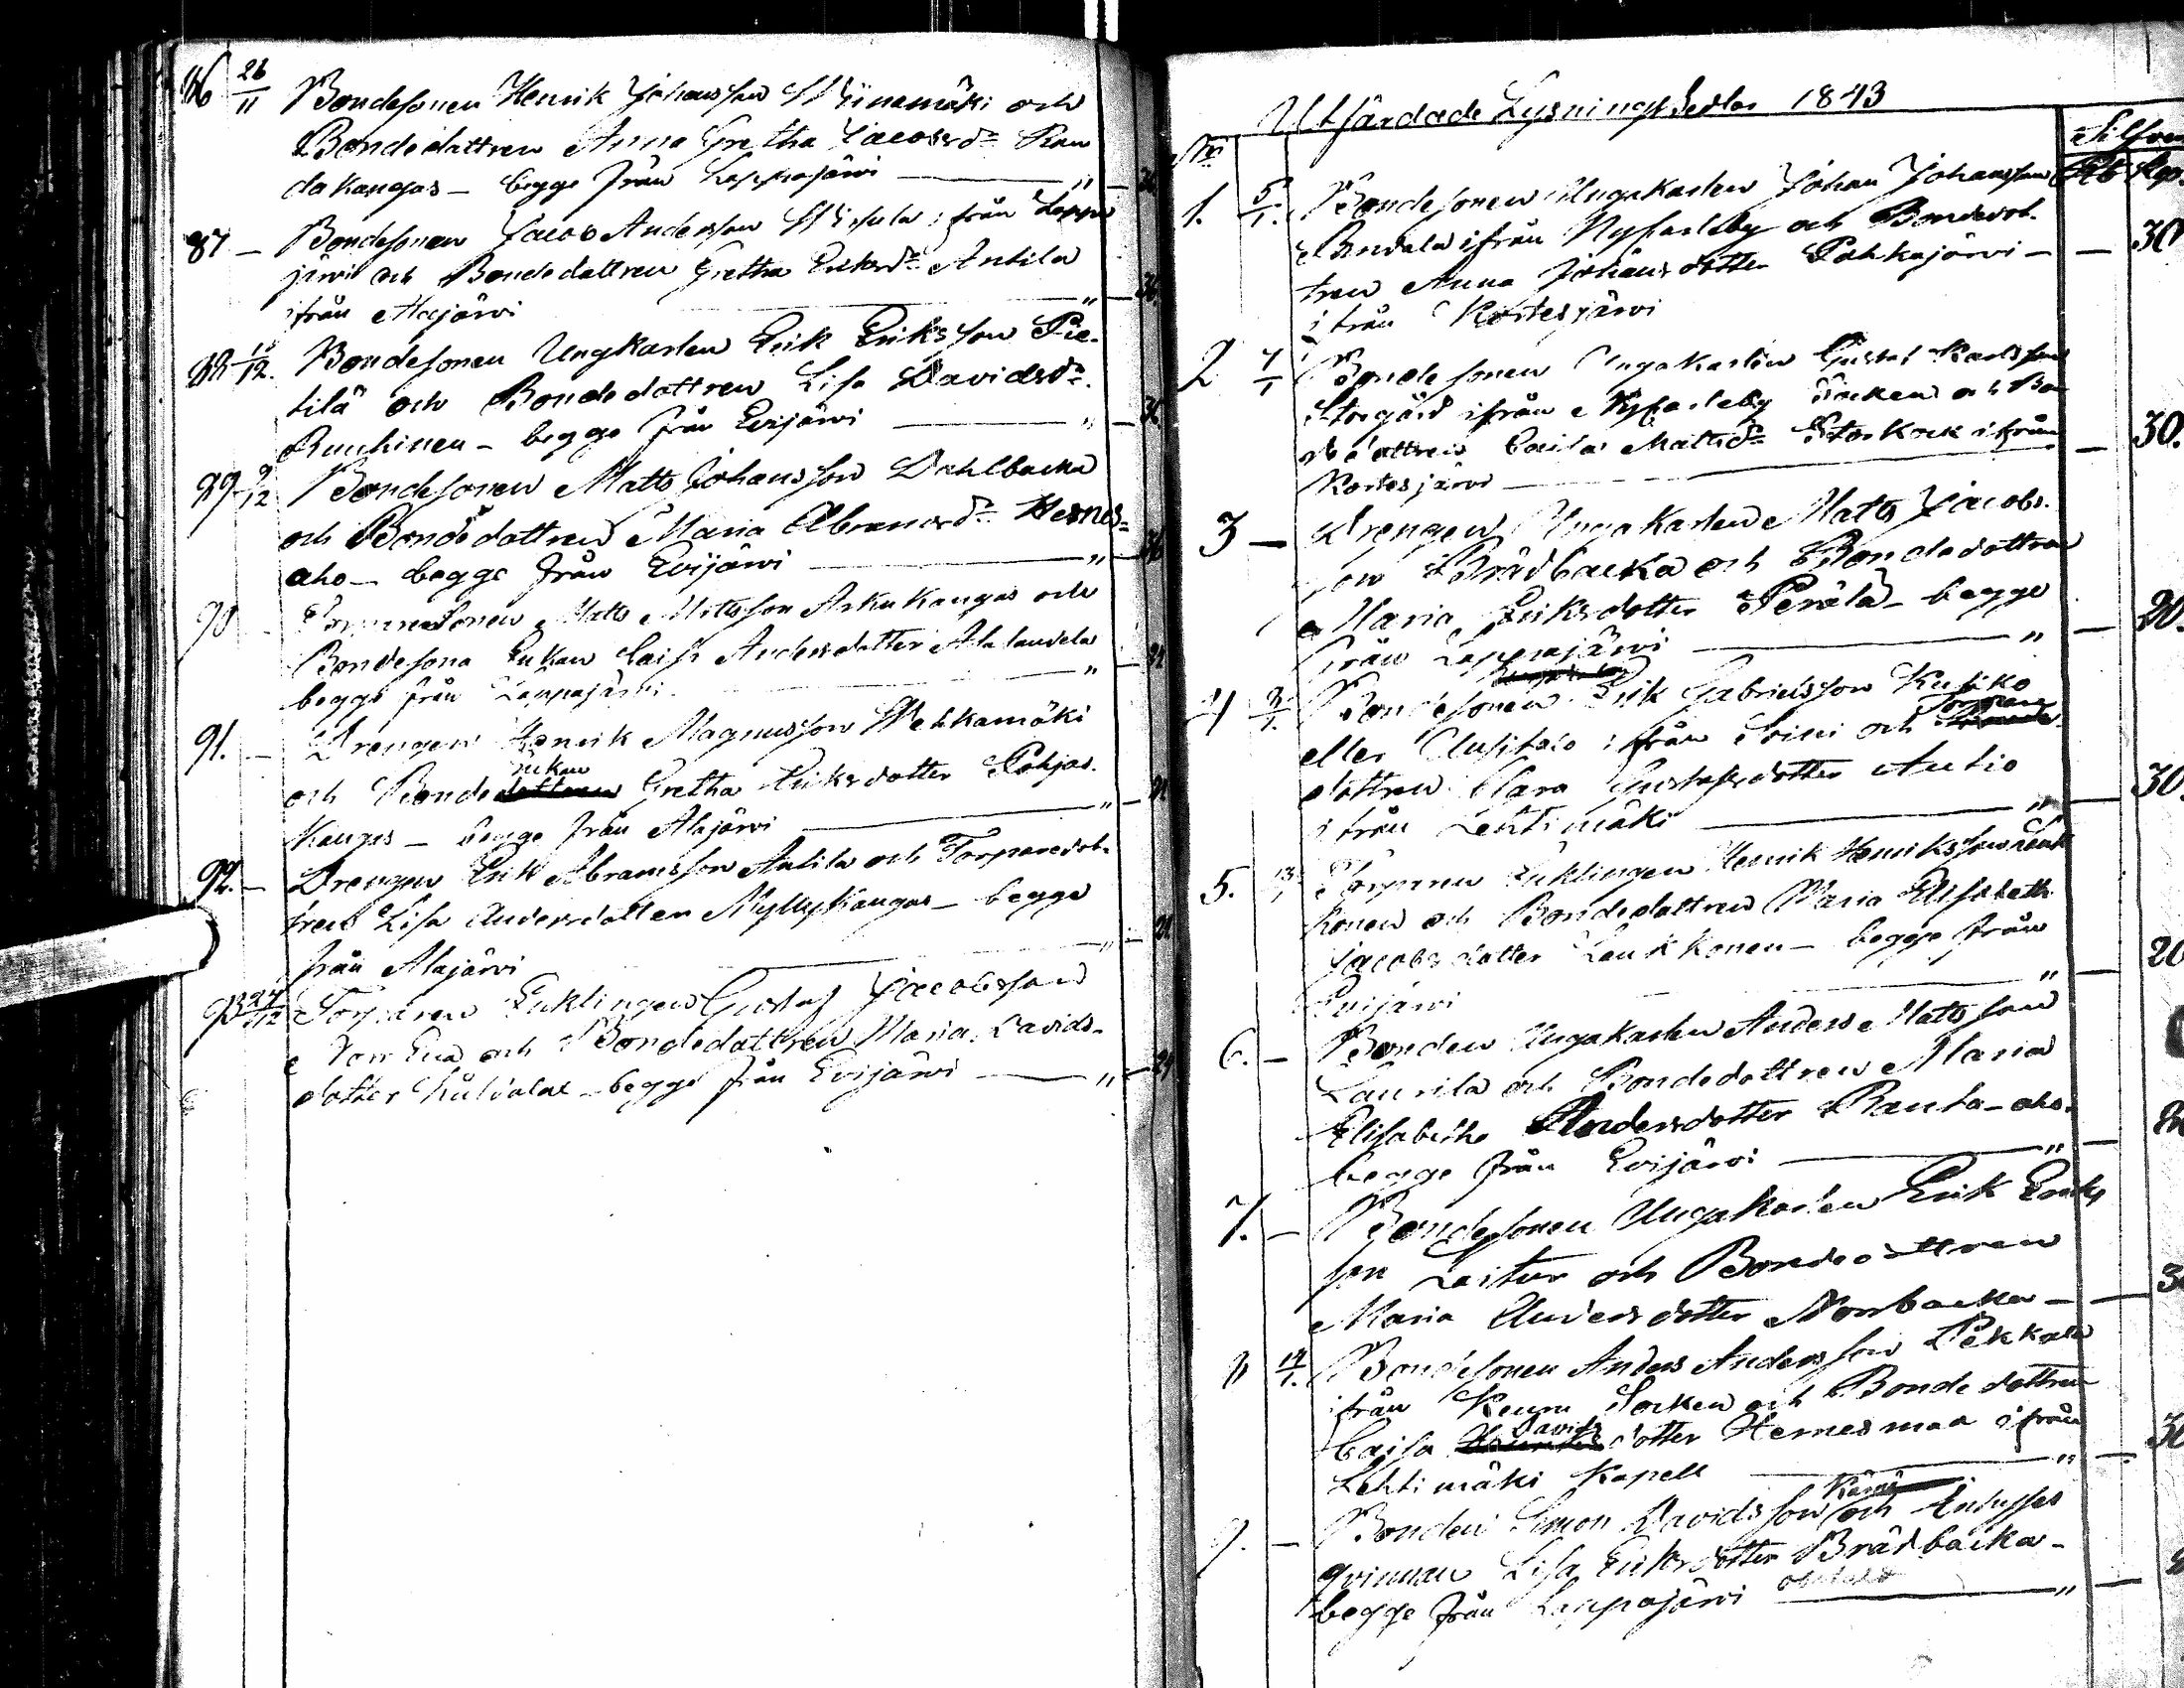 86 26/11 Bondesonen Henrik Johansson Wiinamäki och
Bondedattren Anna Gretha Jacobsdr Ran
dakangas – begge från Lappajärvi — "
87 – Bondesonen Jacob Andersson ifrån Lappa
järvi och Bondedattren Gretha Eriksdr Antila
ifrån Alajärvi — "
88 /12. Bondesonen Ungkarlen Erik Eriksson Pie-
tilä och Bondedottren Lisa Davidsdr.
begge från Evijärvi — "
89 9/12 Bondesonen Matts Johansson Dahlbacka
och Bondedottren Maria Abramsdr Hernes=
aho – begge från Evijärvi — "
90 – Matts Mattsson Askukangas och
Bondesons Enkan Caisa Andersdotter
begge från Lappajärvi — "
91. – Drengen Henrik Magnusson Wehkamäki
Enkan
och Bonde dottren Gretha Eriksdotter Pohjas-
kangas – begge från Alajärvi — "
92. – Drengen Erik Abramsson Antila och Torparedot-
tren Lisa Andersdotter Myllykangas – begge
från Alajärvi — "
93 /12 Torparen Enklingen Gustaf Jacobsson
och Bondedattren Maria Davids-
dotter – begge från Evijärvi — "
Utfärdade Lysnings Sedlar 1843
No Silfver
Rb Kop
1. 5/1. Bondesonen Ungakarlen Johan Johansson
ifrån Nykarleby och Bondedot-
tren Anna Johansdotter Pahkajärvi – – 30
ifrån Kortesjärvi
2 7/1 Bondesonen Ungakarlen Gustaf Karlsson
Storgård ifrån Nykarleby Socken och Bon
dedattren Caisa Mattsdr ifrån – 30.
Kortesjärvi —
3 – Drengen Ungakarlen Matts Jacobs-
son Brädbacka och Bondedottren
Maria Eriksdotter Perälä – begge
från Lappajärvi — " – 20.
4 /1. Bondesonen Erik Gabrielsson
eller ifrån Soini och Torpare
dottren Clara Gustafsdotter Autio
ifrån Lehtimäki — " – 30.
5. 13/1 Torparen Enklingen Henrik Henriksson Leuk
konen och Bondedattren Maria Elisabeth
Jacobsdotter Leukkonen – begge från
Evijärvi — " – 20
6. – Bonden Ungakarlen Anders Mattsson
Laurila och Bondedottren Maria
Elisabetha Andersdotter Ranta-aho.
begge från Evijärvi — " –
7. – Bondesonen Ungakarlen Erik Eriks
son och Bondedottren
Maria Andersdotter Norrbacka – –
8 14/1. Bondesonen Anders Andersson Pekkala
ifrån Keuru Socken och Bondedottren
Davids
Caisa dotter Hernesmaa ifrån
Lehtimäki Kapell — " – 30
9. – Bonden Simon Davidsson och
qvinnan Lisa Eriksdotter Brädbacka –
begge från Lappajärvi — " –